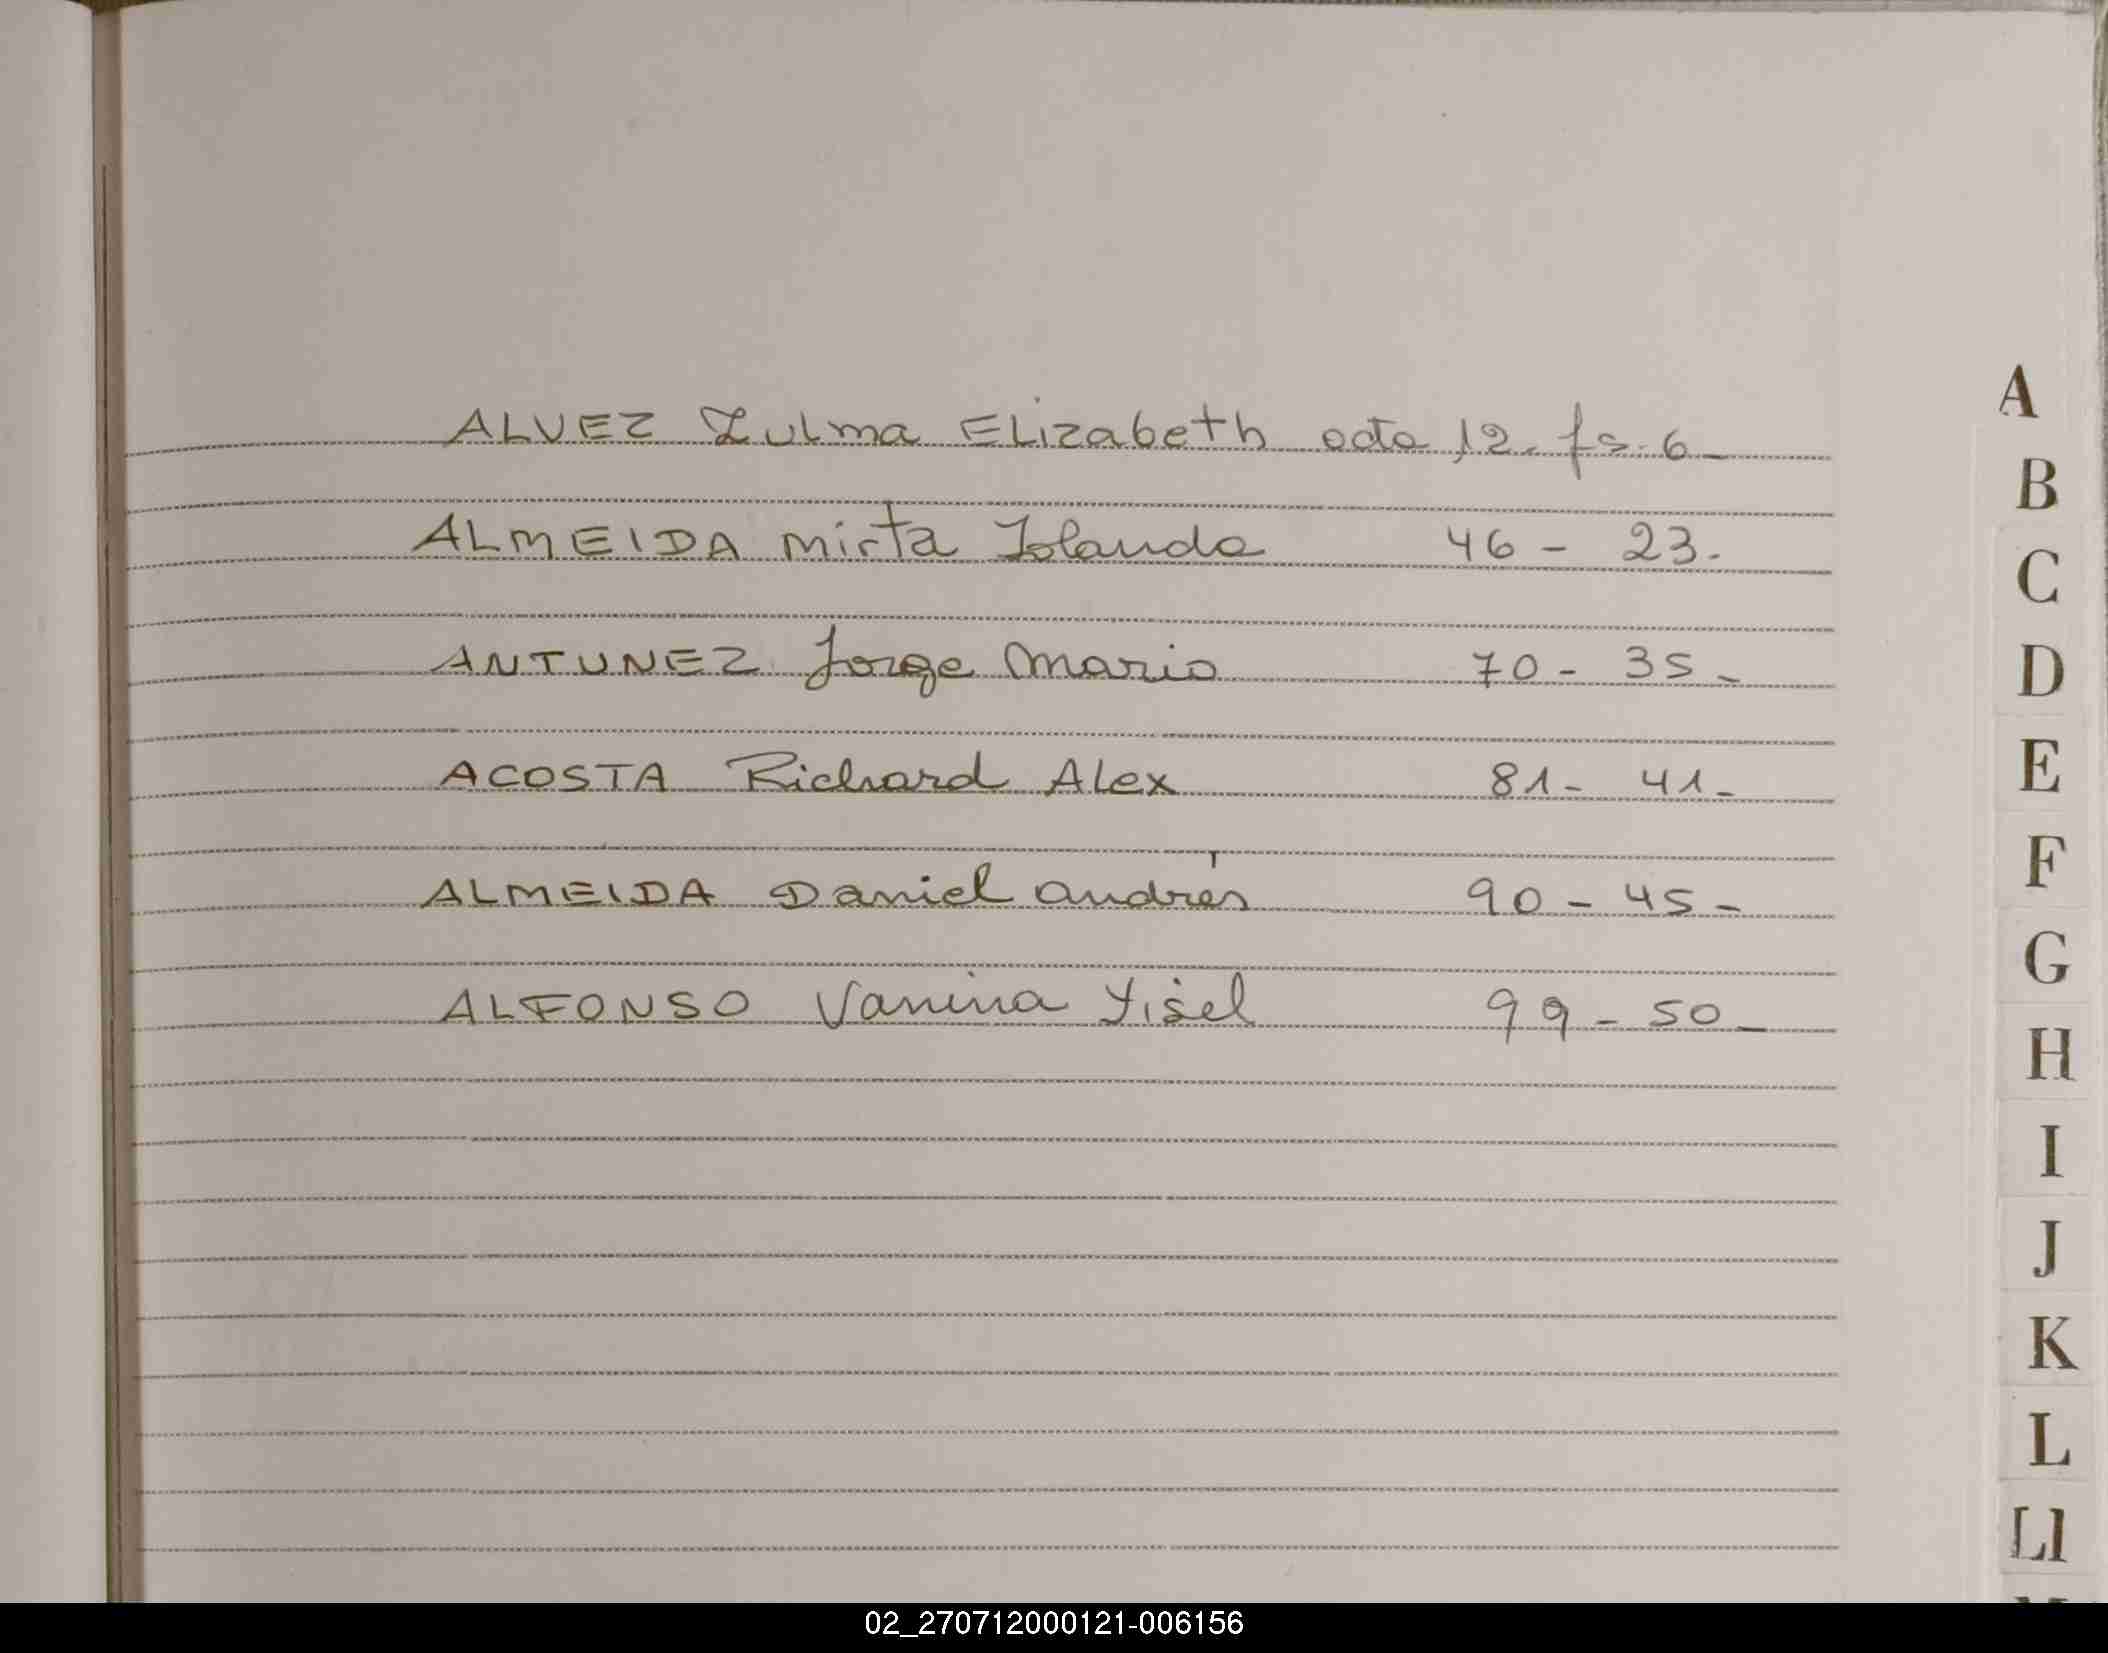 ALVEZ Zulma ELizabeth acta 12. fs. 6-
ALMEIDA Mirta Iolanda 46 - 23.
ANTUNEZ Jorge Mario 70 - 35 -
ACOSTA Richard Alex 81 - 41 -
ALMEIDA Daniel Andrés 90 - 45 -
ALFONSO Vanina Yisel 99 - 50 -
A
B
C
D
E
F
G
H
I
J
K
L
Ll
02_270712000121-006156